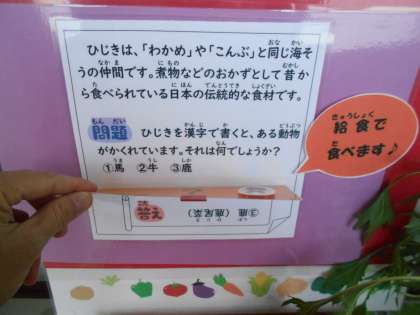 ひじきは、「わかめ」や「こんぶ」と同じ海そ
うの仲間です。煮物などのおかずとして昔か
ら食べられている日本の伝統的な食材です。
問題 ひじきを漢字で書くと、ある動物
がかくれています。それは何でしょうか?
①馬 ②牛 ③鹿
答え ③鹿(鹿尾菜)
給食で
食べます♪